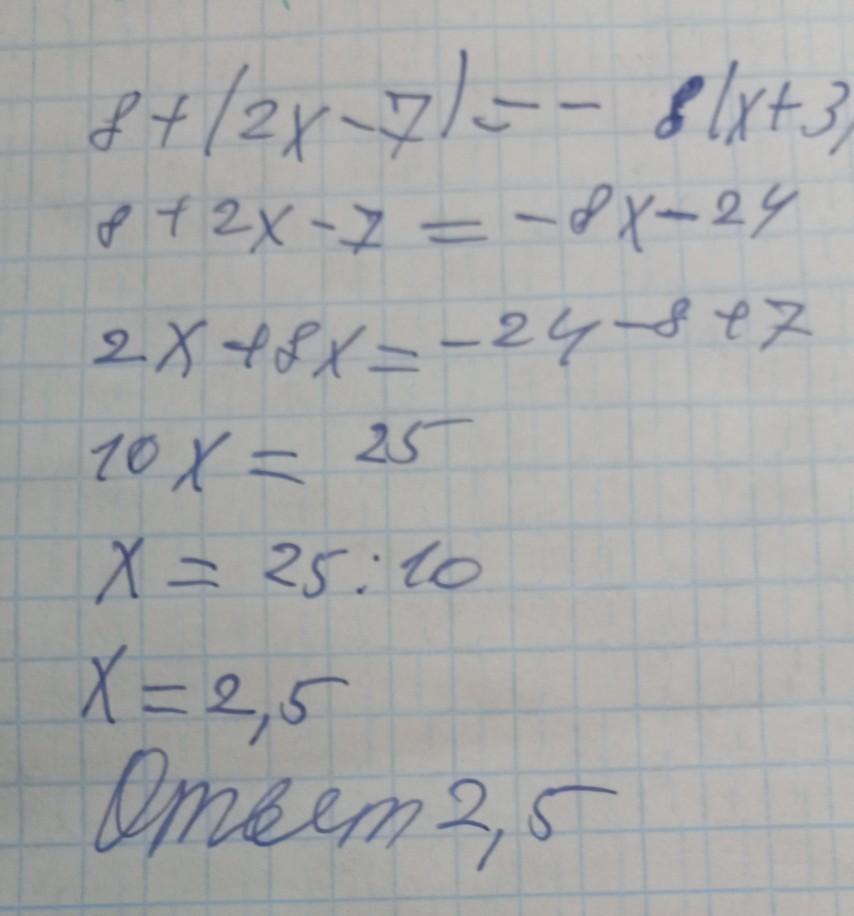 8+(2x-7)=- 8(x+3)
8+2x-7=-8x-24
2x+8x=-24-8+7
10x= 25
x=25:10
x=2,5
Ответ 2,5